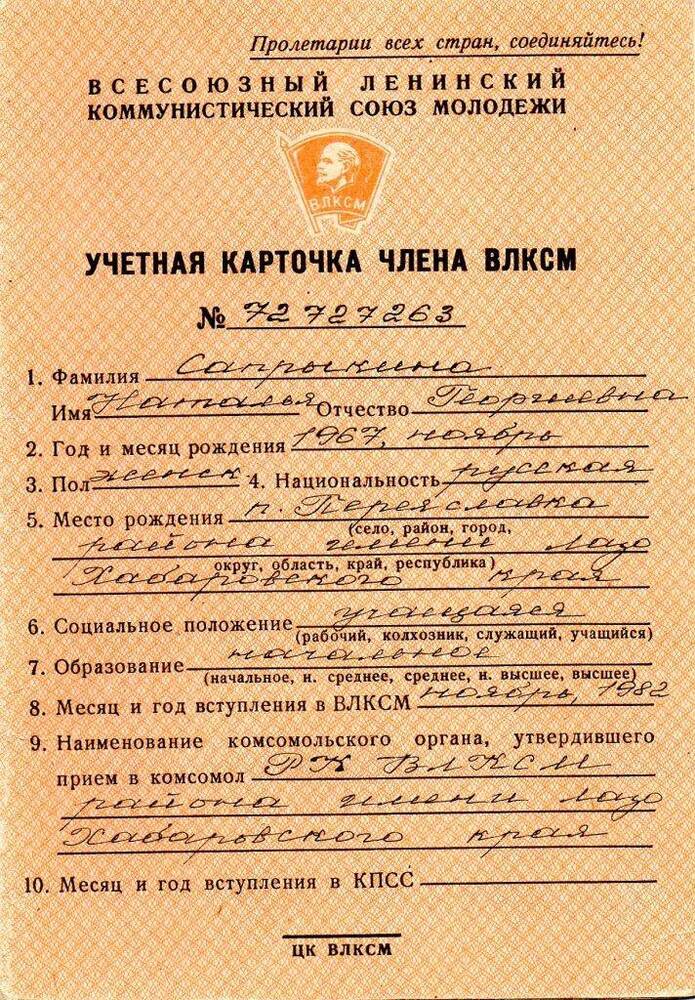 Пролетарии всех стран, соединяйтесь!
ВСЕСОЮЗНЫЙ ЛЕНИНСКИЙ
КОММУНИСТИЧЕСКИЙ СОЮЗ МОЛОДЕЖИ
ВЛКСМ
УЧЕТНАЯ КАРТОЧКА ЧЛЕНА ВЛКСМ
№ 72727263
1. Фамилия Сапрыкина
Имя Наталья Отчество Георгиевна
2. Год и месяц рождения 1967, ноябрь
3. Пол женск 4. Национальность русская
5. Место рождения п. Переяславка
(село, район, город,
района имени Лазо
округ, область, край, республика)
Хабаровского края
6. Социальное положение учащаяся
(рабочий, колхозник, служащий, учащийся)
7. Образование начальное
(начальное, н. среднее, среднее, н. высшее, высшее)
8. Месяц и год вступления в ВЛКСМ ноябрь, 1982
9. Наименование комсомольского органа, утвердившего
прием в комсомол РК ВЛКСМ
района имени Лазо
Хабаровского края
10. Месяц и год вступления в КПСС
ЦК ВЛКСМ